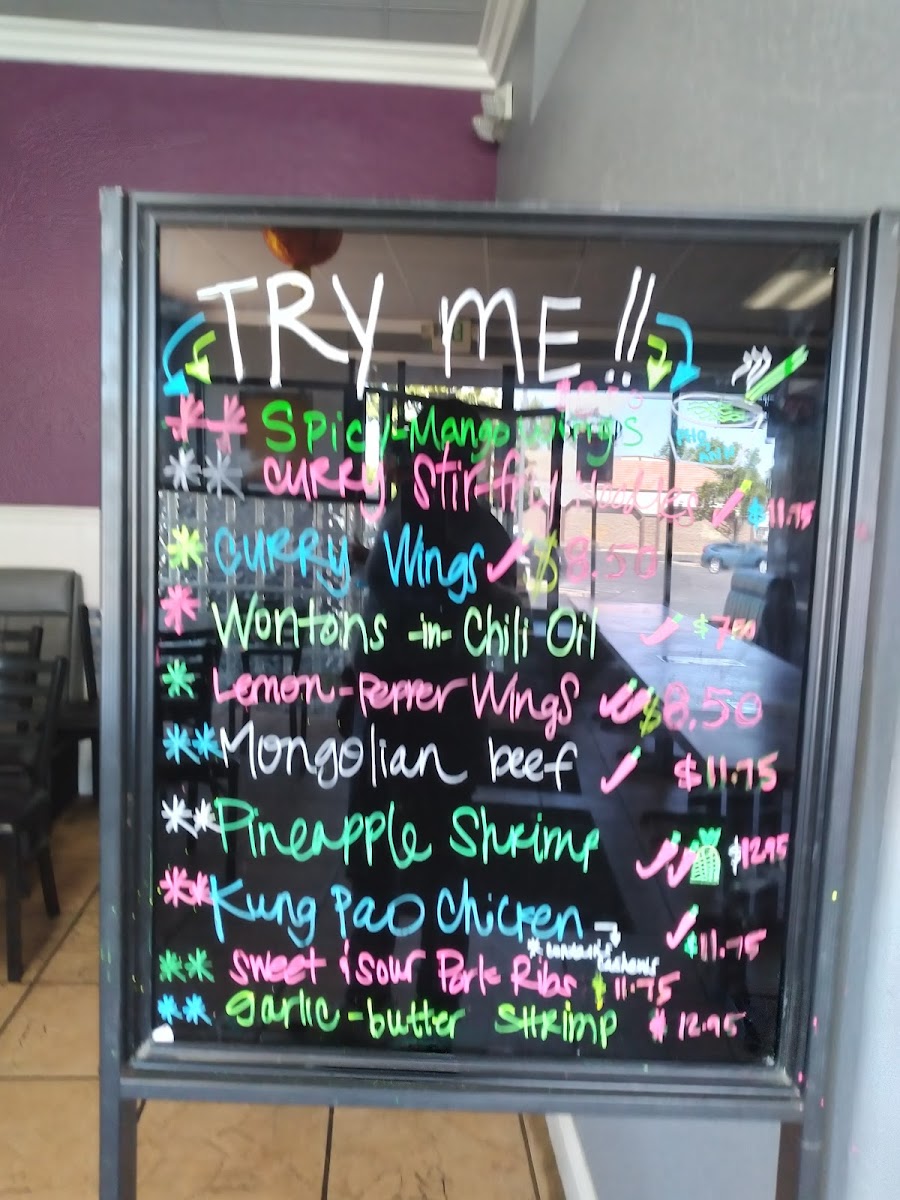 TRY ME !!
** Spicy-Mango Wings
** CURRY Stir-fry Noodles $11.75
* CURRY Wings $8.50
* Wontons -in- Chili Oil $7.00
* Lemon-Pepper Wings $8.50
** Mongolian beef $11.75
** Pineapple Shrimp $12.95
** Kung Pao Chicken $11.75
cashews
** Sweet & Sour Pork Ribs $11.75
** garlic-butter SHRIMP $12.95